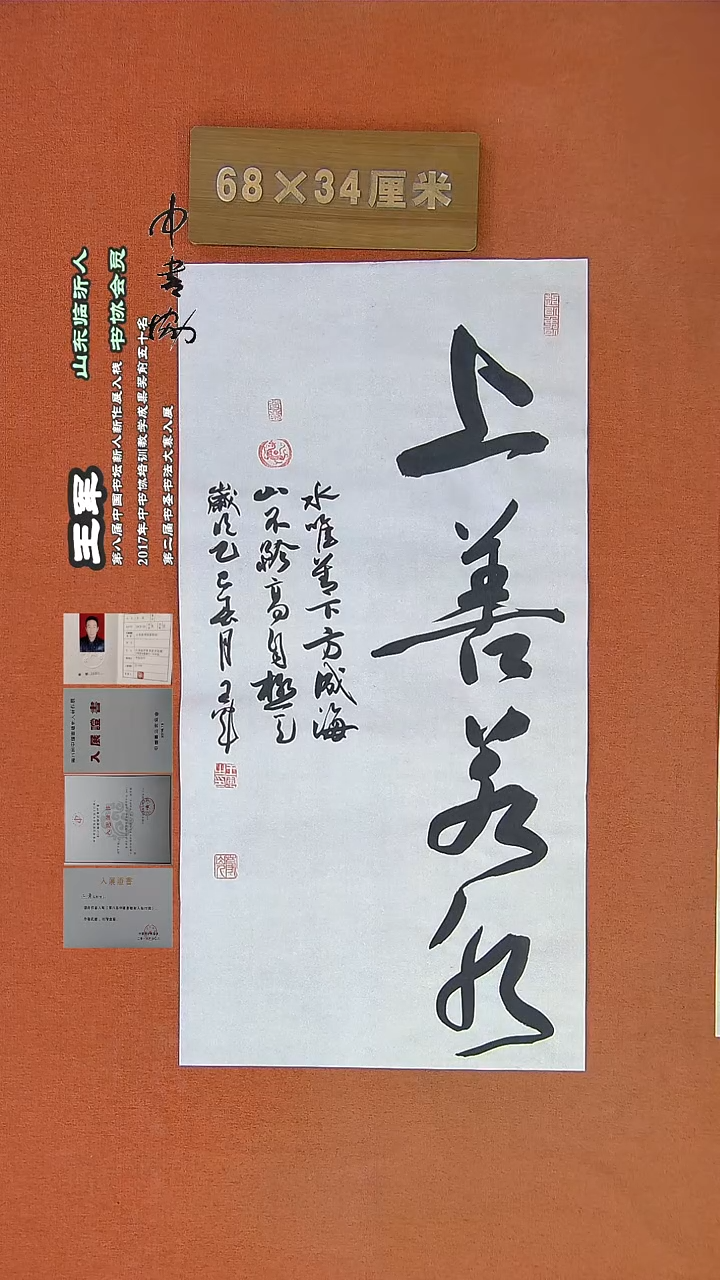 68×34厘米
中书协
山东临沂人
书协会员
王军
第八届中国书坛新人新作展入展
2017年中书协培训教学成果奖前五十名
第二届书圣书法大赛入展
上善若水
水唯善下方成海
山不矜高自极天
岁次乙巳春月王军
入展證書
入展證書